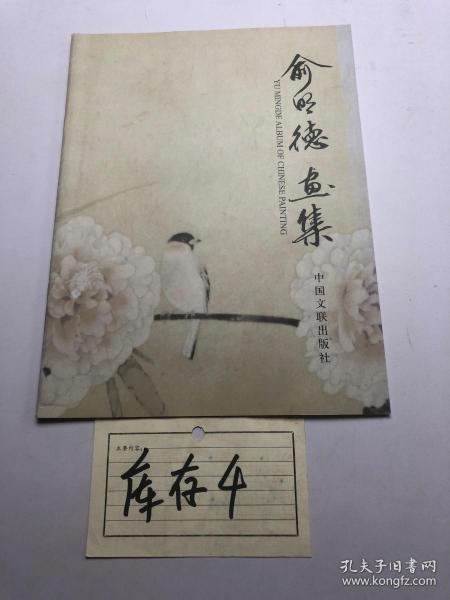 俞明德 画集
YU MINGDE ALBUM OF CHINESE PAINTING
中国文联出版社
主要内容:
库存4
孔夫子旧书网
www.kongfz.com